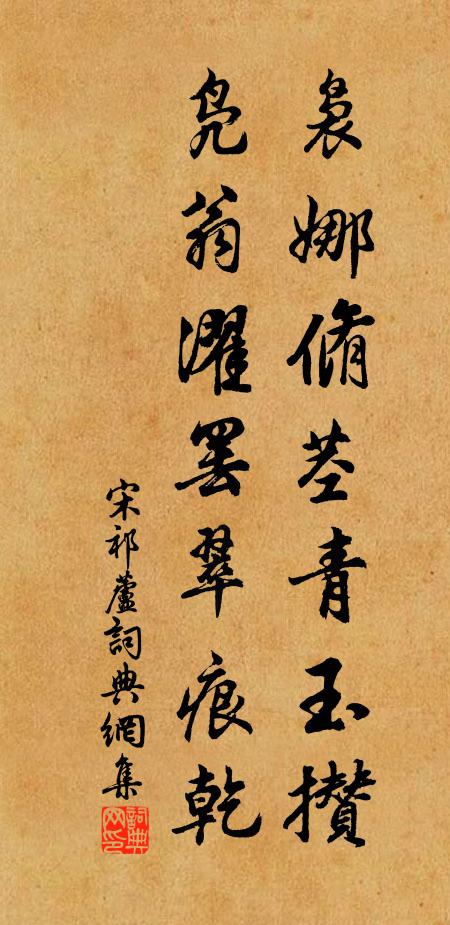 裊娜脩莖青玉攅
鳧翁濯罷翠痕乾
宋祁蘆詞典網集
詞典网印